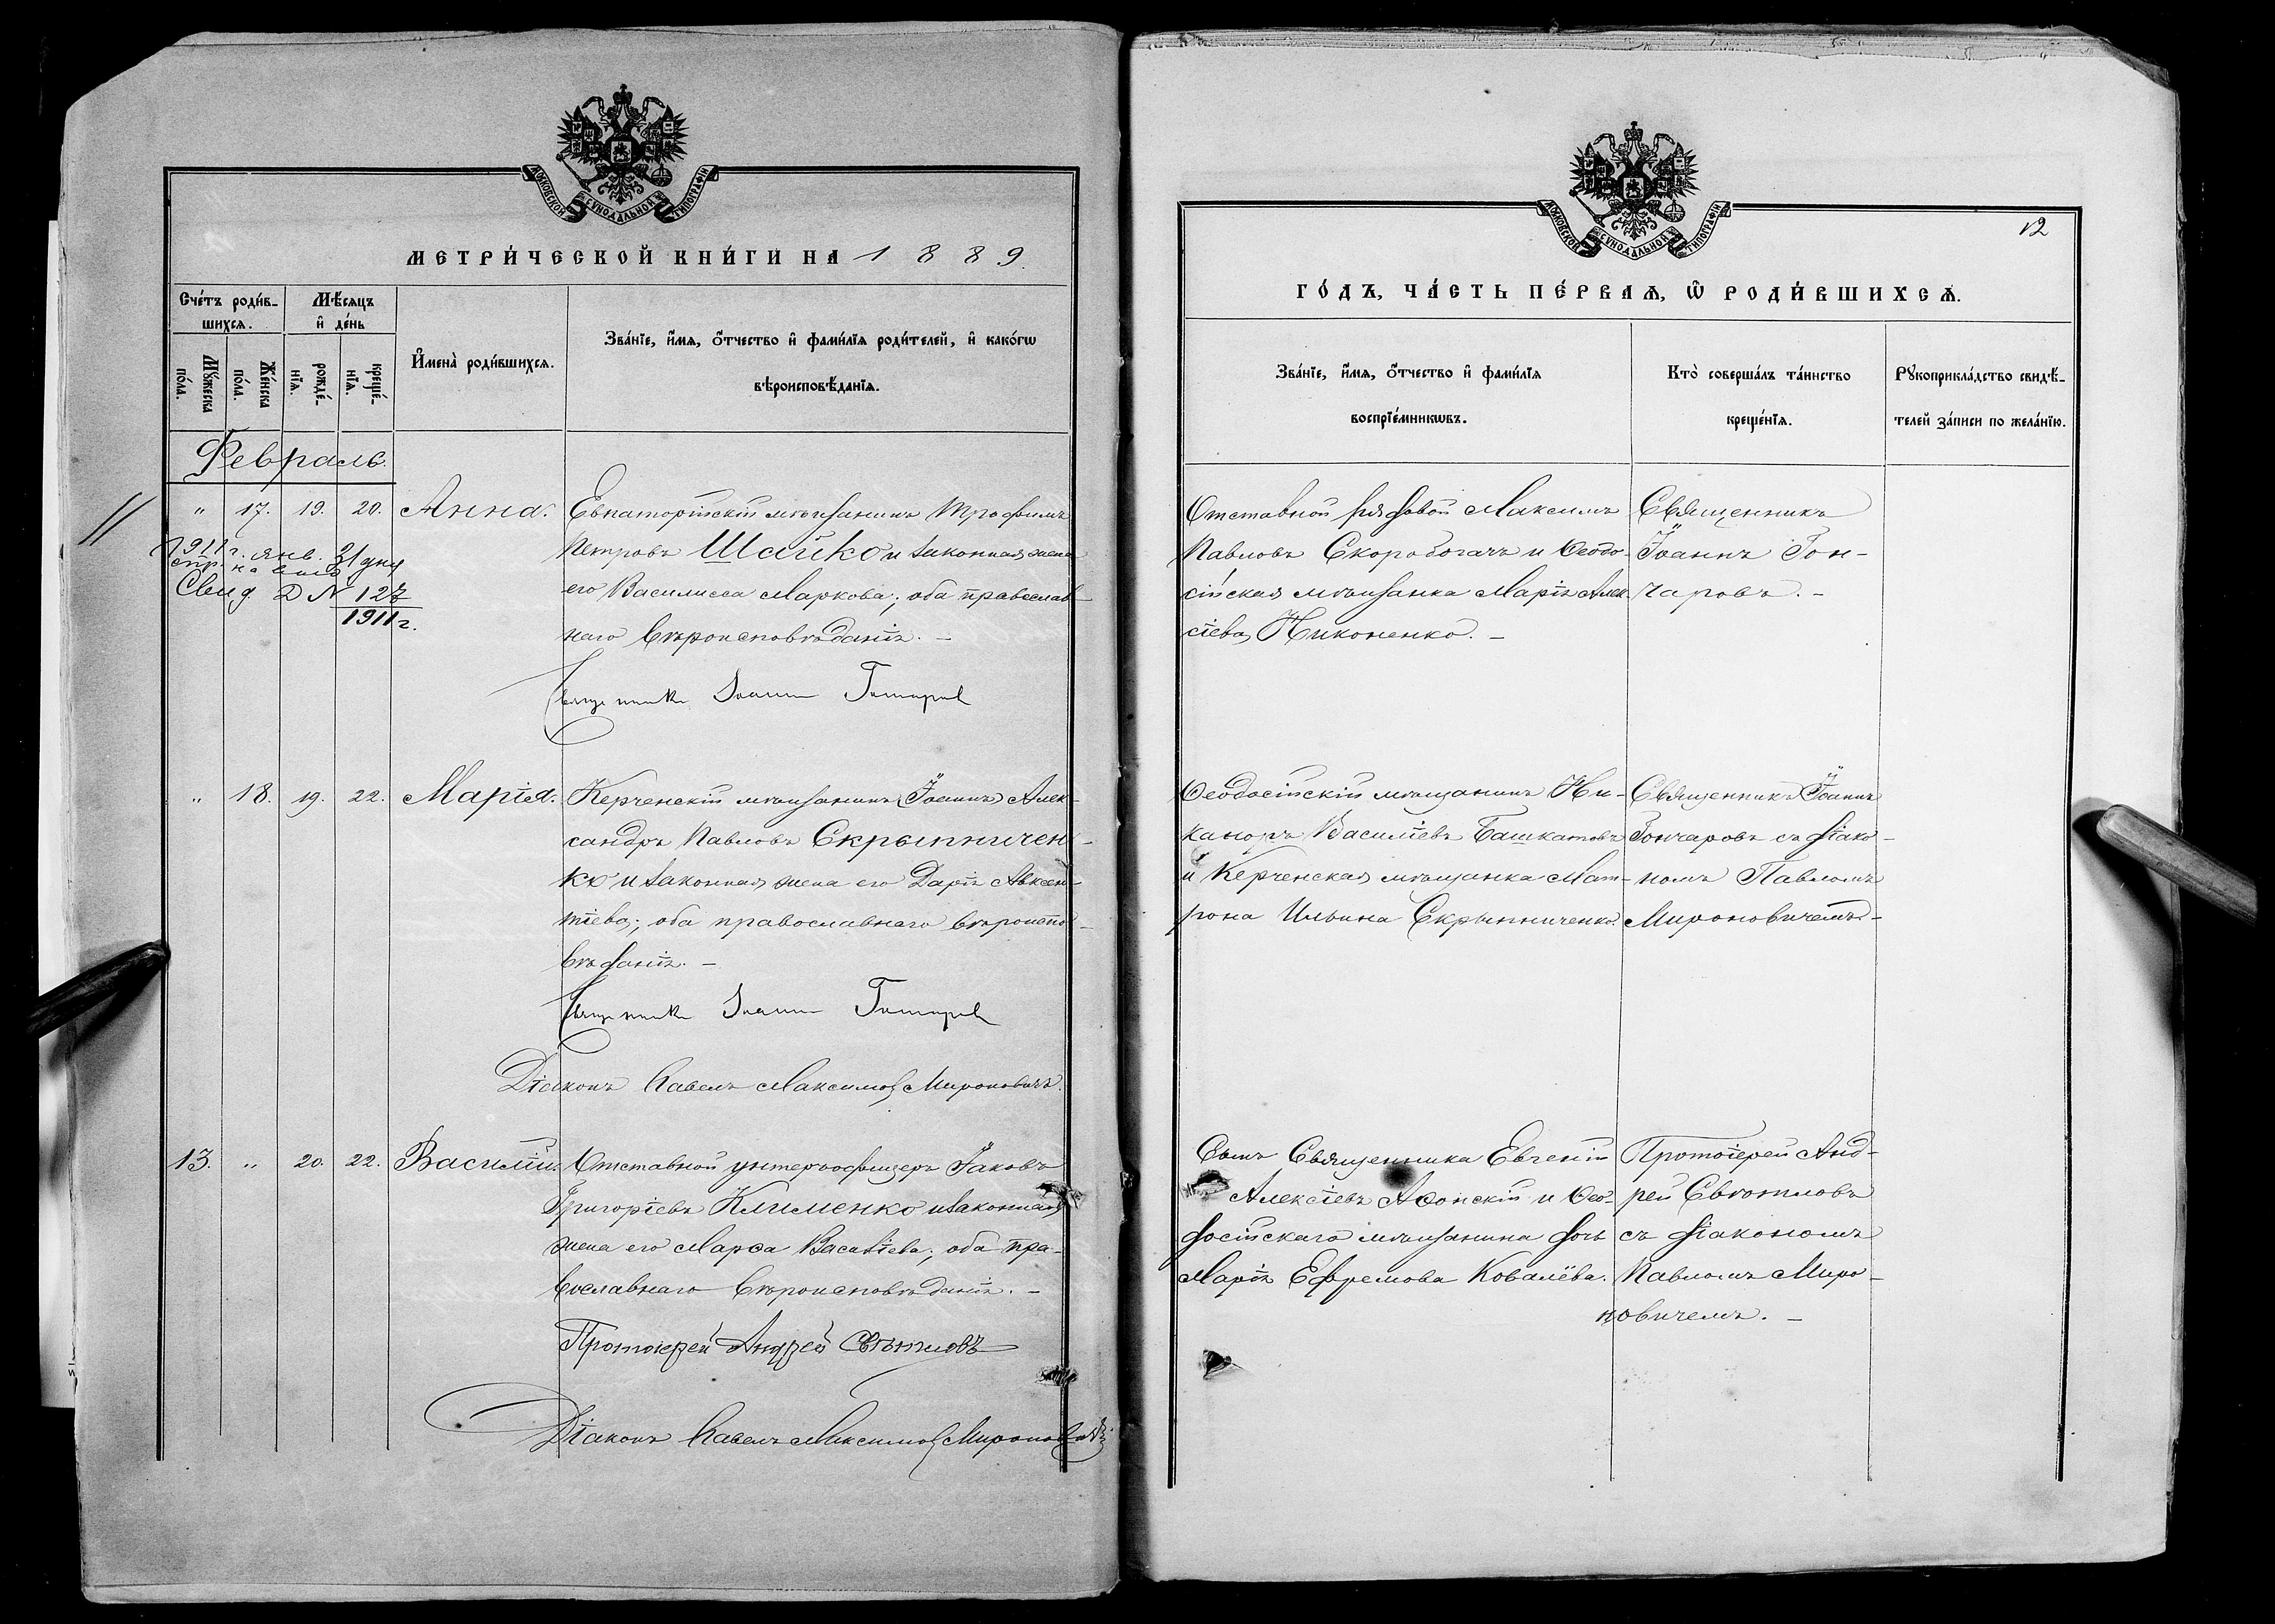 МОСКОВСКОЙ СУНОДАЛЬНОЙ ТИПОГРАФІИ
МЕТРИ́ЧЕСКОЙ КНИ́ГИ НА 1889.
Сче́тъ роди́в-
шихсѧ.
Мѣ́сѧцъ
и҆ де́нь
Мꙋ́жеска
по́ла.
Же́нска
по́ла.
рожде́-
нїѧ.
креще́-
нїѧ.
И҆мена̀ роди́вшихсѧ.
Зва́нїе, и҆́мѧ, ѻ҆́тчество и҆ фами́лїѧ роди́телей, и҆ како́гѡ
вѣроисповѣ́данїѧ.
Февраль.
" 17. 19. 20. Анна.
Евпаторійскій мѣщанинъ Трофимъ
Петровъ Шайко и законная жена
его Василисса Маркова; оба православ-
наго вѣроисповѣданія. –
1911 г. янв. 21 дня
Свид. Д № 127
1911 г.
Священникъ Іоаннъ Гончаровъ
" 18. 19. 22. Марія.
Керченскій мѣщанинъ Іоаннъ Алек-
сандръ Павловъ Скрыпничен-
ко и законная жена его Дарія Авксен-
тіева; оба православнаго вѣроиспо-
вѣданія. –
Священникъ Іоаннъ Гончаровъ
Діаконъ Павелъ Максимов Мироновичъ.
13. " 20. 22. Василій.
Отставной унтеръ-офицеръ Іаковъ
Григоріевъ Клименко и законная
жена его Марѳа Василіева; оба пра-
вославнаго вѣроисповѣданія. –
Протоіерей Андрей Свѣтиловъ
Діаконъ Павелъ Максимов Мироновичъ
МОСКОВСКОЙ СУНОДАЛЬНОЙ ТИПОГРАФІИ
12
ГО́ДЪ, ЧА́СТЬ ПЕ́РВАѦ, Ѽ РОДИ́ВШИХСѦ.
Зва́нїе, и҆́мѧ, ѻ҆́тчество и҆ фами́лїѧ
воспрїе́мникѡвъ.
Кто̀ соверша́лъ та́инство
креще́нїѧ.
Рꙋкоприкла́дство свидѣ́-
телей за́писи по жела́нїю.
Отставной рядовой Максимъ
Павловъ Скоробогачъ и Ѳеодо-
сійская мѣщанка Марія Алек-
сіева Никоненко. –
Священникъ
Іоаннъ Гон-
чаровъ. –
Ѳеодосійскій мѣщанинъ Ни-
каноръ Василіевъ Башкатовъ
и Керченская мѣщанка Мат-
рона Ильина Скрыпниченко.
Священникъ Іоаннъ
Гончаровъ съ діако-
номъ Павломъ
Мироновичемъ –
Сынъ Священника Евгеній
Алексіевъ Аѳонскій и Ѳео-
досійскаго мѣщанина дочь
Марія Ефремова Ковалёва.
Протоіерей Анд-
рей Свѣтиловъ
съ діакономъ
Павломъ Миро-
новичемъ. –